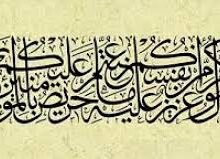 من أنفسكم عزيز عليه ما عنتم حريص عليكم